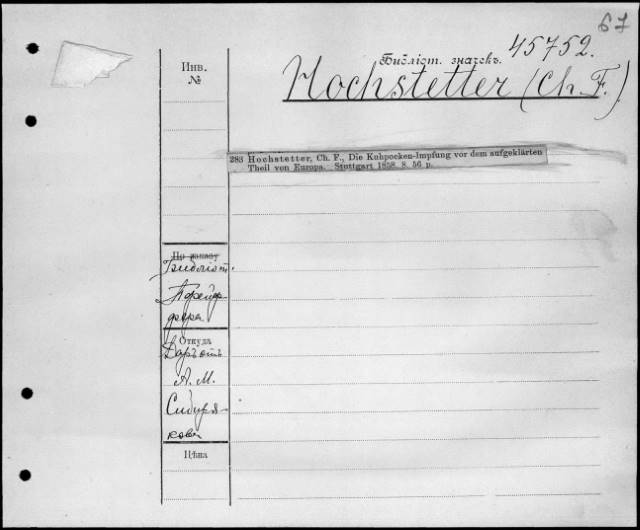 67
Библіот. значекъ. 45752.
Hochstetter (Ch. F.)
Инв.
№
283 Hochstetter, Ch. F., Die Kuhpocken-Impfung vor dem aufgeklärten
Theil von Europa. Stuttgart 1858. 8. 56 p.
По заказу
Библіот.
Прейф-
фера
Откуда
Даръ отъ
А. М.
Сибиря-
кова
Цѣна